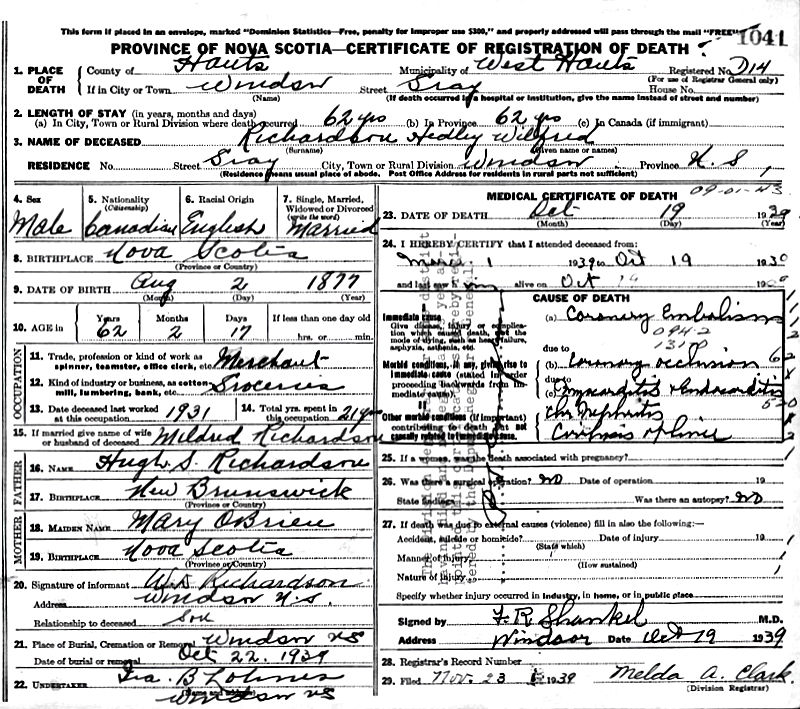 This form if placed in an envelope, marked "Dominion Statistics—Free, penalty for improper use $300," and properly addressed will pass through the mail "FREE"
1041
PROVINCE OF NOVA SCOTIA—CERTIFICATE OF REGISTRATION OF DEATH
1. PLACE OF DEATH County of Hants Municipality of West Hants Registered No. D14
(For use of Registrar General only)
If in City or Town Windsor Street Gray House No.
(Name) (If death occurred in a hospital or institution, give the name instead of street and number)
2. LENGTH OF STAY (in years, months and days)
(a) In City, Town or Rural Division where death occurred 62 yrs (b) In Province 62 yrs (c) In Canada (if immigrant)
3. NAME OF DECEASED Richardson Hedley Wilfred
(Surname) (Given name or names)
RESIDENCE No. Street Gray City, Town or Rural Division Windsor Province N.S.
(Residence means usual place of abode. Post Office Address for residents in rural parts not sufficient)
4. Sex Male
5. Nationality (Citizenship) Canadian
6. Racial Origin English
7. Single, Married, Widowed or Divorced (write the word) Married
8. BIRTHPLACE Nova Scotia
(Province or Country)
9. DATE OF BIRTH Aug 2 1877
(Month) (Day) (Year)
10. AGE in Years 62 Months 2 Days 17 If less than one day old hrs. or min.
OCCUPATION
11. Trade, profession or kind of work as spinner, teamster, office clerk, etc. Merchant
12. Kind of industry or business, as cotton mill, lumbering, bank, etc. Groceries
13. Date deceased last worked at this occupation 1931 14. Total yrs. spent in this occupation 21 yrs
15. If married give name of wife or husband of deceased Mildred Richardson
FATHER
16. NAME Hugh S. Richardson
17. BIRTHPLACE New Brunswick
(Province or Country)
MOTHER
18. MAIDEN NAME Mary OBrien
19. BIRTHPLACE Nova Scotia
(Province or Country)
20. Signature of informant Richardson
Address Windsor N.S.
Relationship to deceased Son
21. Place of Burial, Cremation or Removal Windsor NS
Date of burial or removal Oct 22. 1939
22. UNDERTAKER Ira B Lohnes
(Name and address)
Windsor NS
MEDICAL CERTIFICATE OF DEATH
09-01-43
23. DATE OF DEATH Oct 19 1939
(Month) (Day) (Year)
24. I HEREBY CERTIFY that I attended deceased from:
March 1 1939 to Oct 19 1939
and last saw him alive on Oct 19
CAUSE OF DEATH
Immediate cause
Give disease, injury or complication which caused death, not the mode of dying, such as heart failure, asphyxia, asthenia, etc.
(a) Coronary Embolism
094-2
131
due to
Morbid conditions, if any, giving rise to immediate cause (stated in order proceeding backwards from immediate cause).
(b) Coronary occlusion
due to
(c) Myocarditis & Endocarditis
Other morbid conditions (if important) contributing to death but not causally related to immediate cause.
Chr Nephritis
Cirrhosis of liver
25. If a woman, was the death associated with pregnancy?
26. Was there a surgical operation? no Date of operation 19
State findings Was there an autopsy? no
27. If death was due to external causes (violence) fill in also the following:—
Accident, suicide or homicide? Date of injury 19
(State which)
Manner of injury
(How sustained)
Nature of injury
Specify whether injury occurred in industry, in home, or in public place
Signed by F. R. Shankel M.D.
Address Windsor Date Oct 19 1939
28. Registrar's Record Number
29. Filed Nov. 23 1939 Melda A. Clark
(Division Registrar)